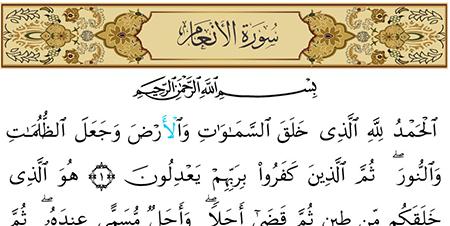 سُورَةُ الْأَنْعَامِ
بِسْمِ اللَّهِ الرَّحْمَٰنِ الرَّحِيمِ
الْحَمْدُ لِلَّهِ الَّذِي خَلَقَ السَّمَاوَاتِ وَالْأَرْضَ وَجَعَلَ الظُّلُمَاتِ
وَالنُّورَ ۖ ثُمَّ الَّذِينَ كَفَرُوا بِرَبِّهِمْ يَعْدِلُونَ ﴿١﴾ هُوَ الَّذِي
خَلَقَكُم مِّن طِينٍ ثُمَّ قَضَىٰ أَجَلًا ۖ وَأَجَلٌ مُّسَمًّى عِندَهُ ۖ ثُمَّ